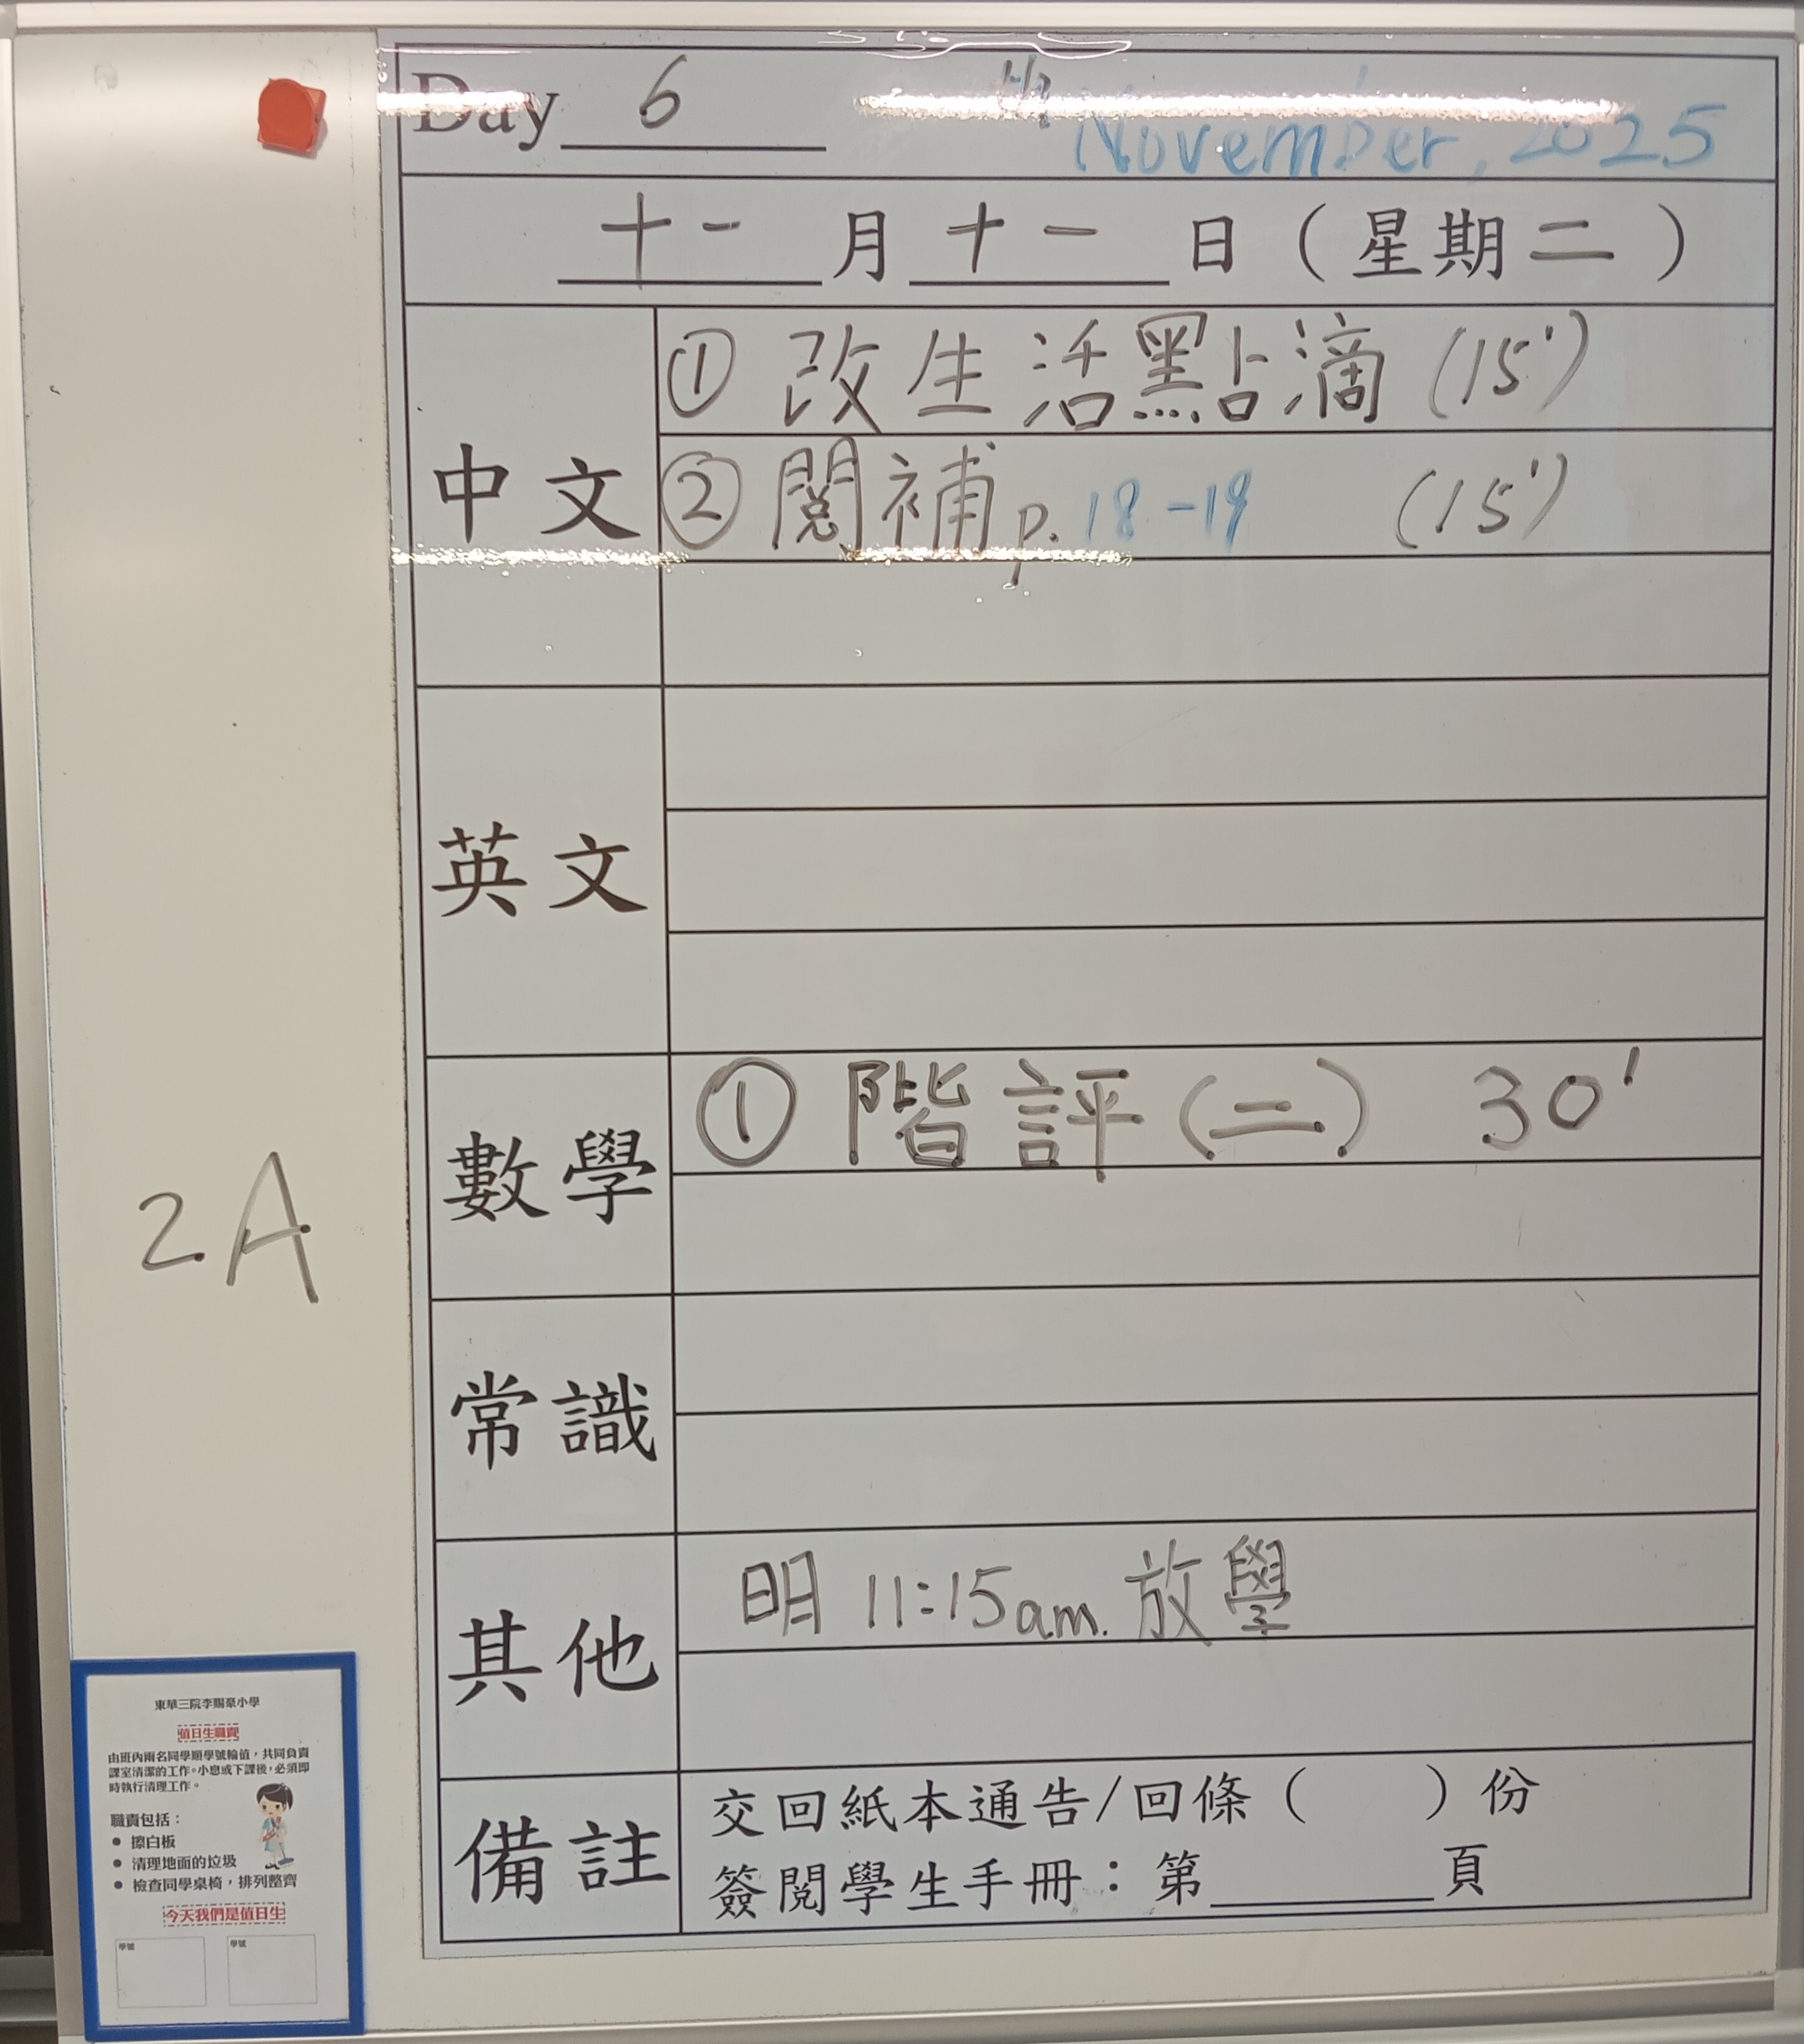 Day 6 11th November, 2025
十一月十一日（星期二）
中文
① 改生活點滴 (15')
② 閱補 p. 18-19 (15')
英文
數學
① 階評(二) 30'
常識
其他
明 11:15am. 放學
備註
交回紙本通告/回條（ ）份
簽閱學生手冊：第______頁
2A
東華三院李賜豪小學
值日生職責
由班內兩名同學順學號輪值，共同負責
課室清潔的工作。小息或下課後，必須即
時執行清理工作。
職責包括：
● 擦白板
● 清理地面的垃圾
● 檢查同學桌椅，排列整齊
今天我們是值日生
學號 學號